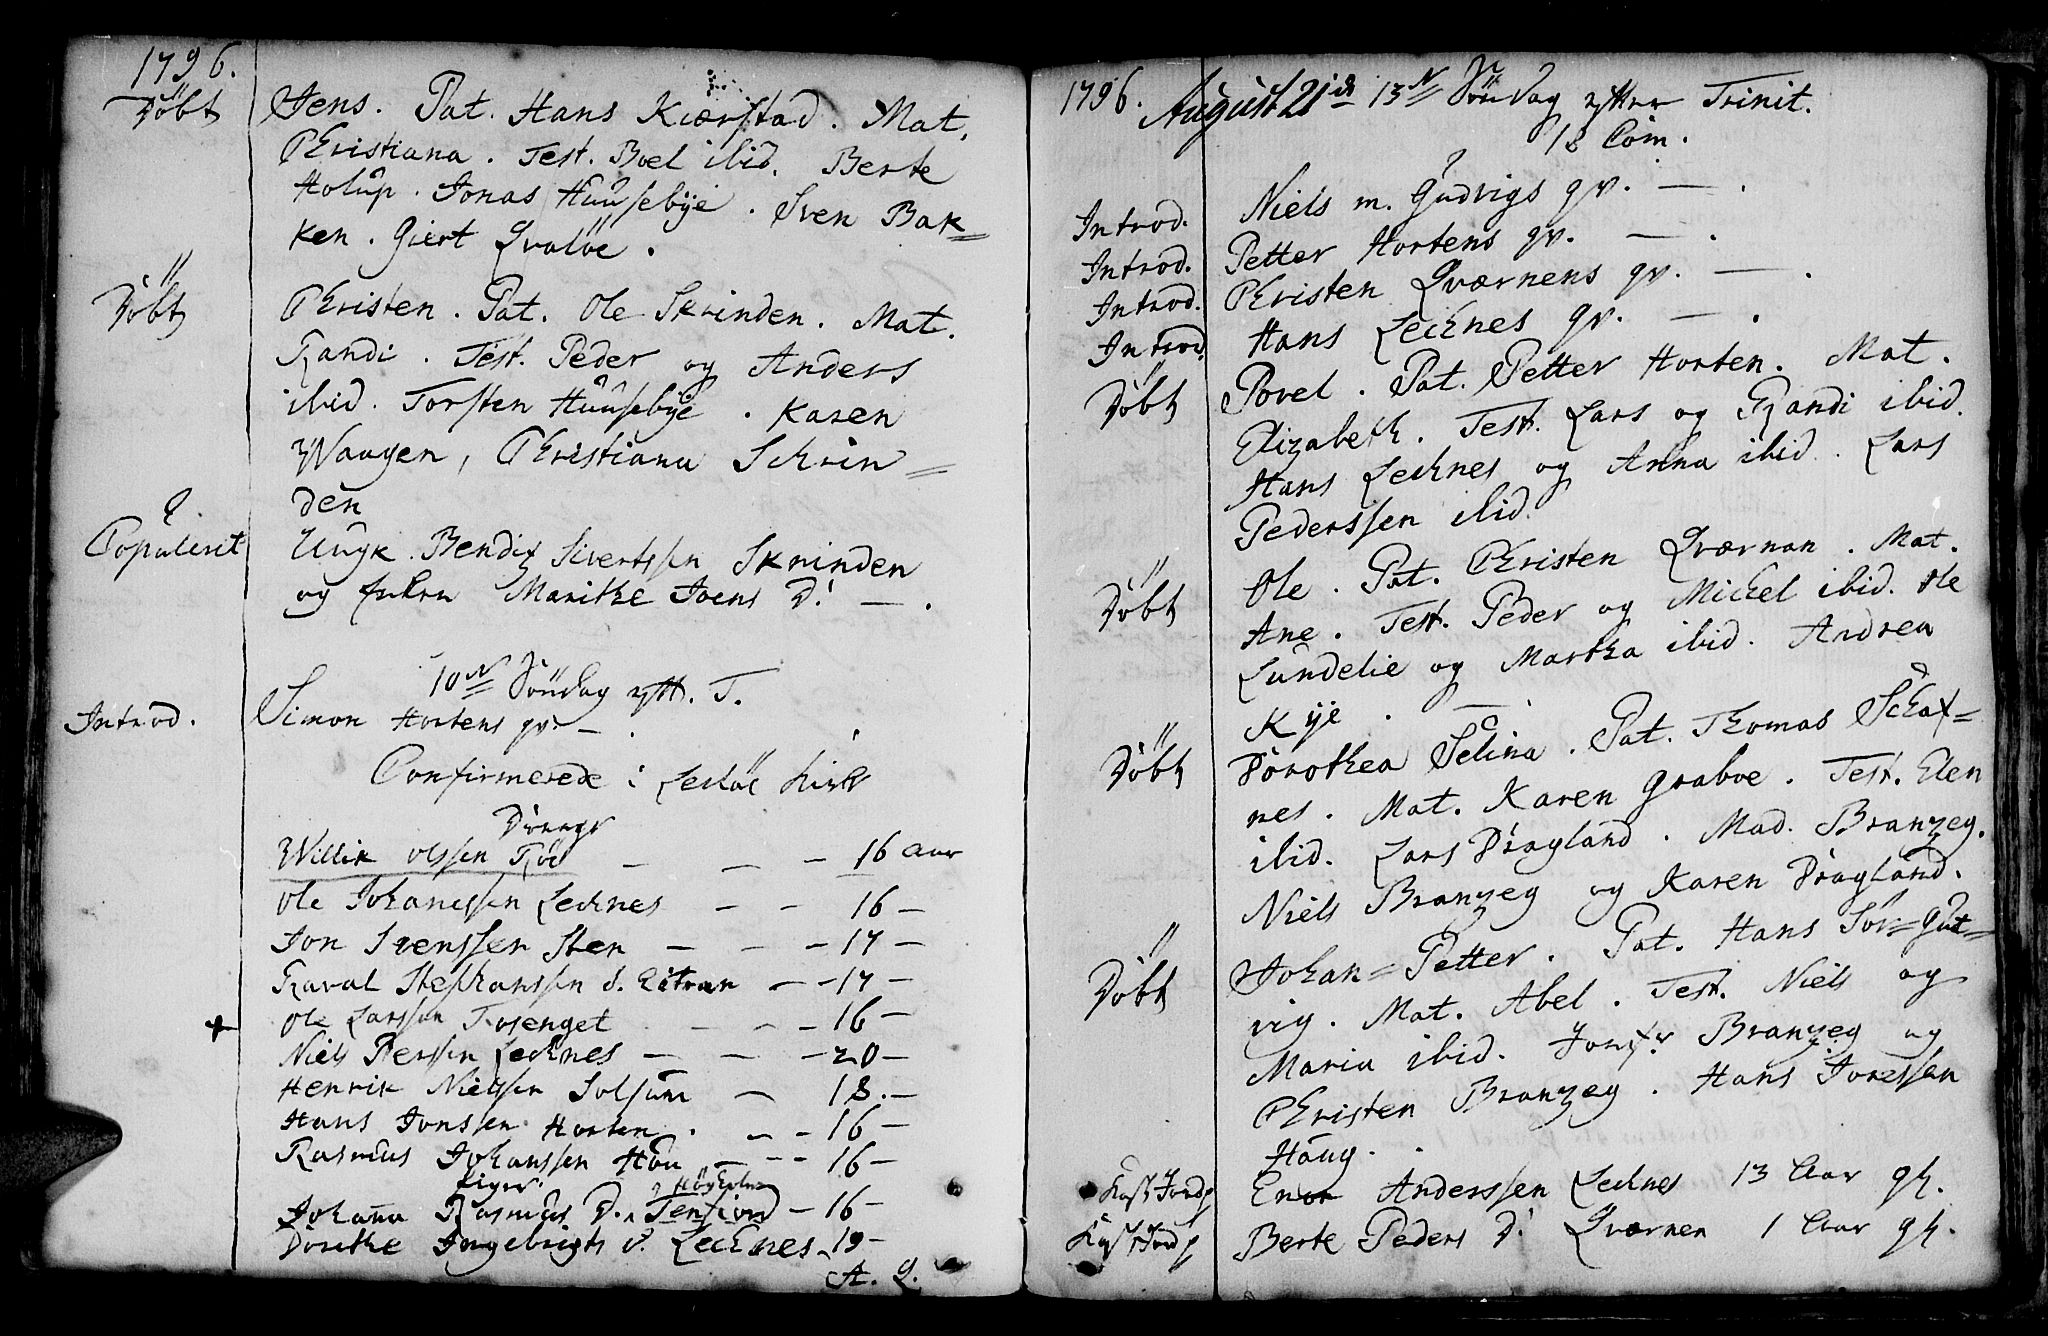 1796.
Döbt Jens. Pat. Hans Kiærstad. Mat.
Christiana. Test. Boel ibid. Berte
Holup. Jonas Huusebÿe. Sven Bak=
ken. Giert Qvalöe.
Döbt Christen. Pat. Ole Skrinden. Mat.
Randi. Test. Peder og Anders
ibid. Torsten Huusebÿe. Karen
Waagen, Christiana Schrin=
den
Copulerit Ungk. Bendix Sivertssen Skrinden
og Marithe Joens D. — .
10de Söndag eftr. T.
Introd. Simon Hortens qv. — .
Confirmerede i Leslöe Kirke
Drenge
Willik olssen Röe — — — 16 aar
Ole Johanessen Lechnes — — 16 —
Jon Svenssen Sten — — — 17 —
Raval Stephanssen S. Eitran — — 17 —
Ole Larssen Rosenget — — — 16 —
Niels Perssen Lechnes — — — 20 —
Henrik Nielssen Solsum — 18. —
Hans Jonssen Horten. — — 16 —
Rasmus Johanssen Hou — — — 16 —
Piger.
Johanna Rasmus D. Tenfiord — 16 —
Dorethe Ingebrigts D. Lechnes — 19 —
1796. August 21de 13de Söndag efter Trinit.
18 Com.
Introd. Niels m. Gudvigs qv. — .
Introd. Petter Hortens qv. — .
Introd. Christen Qværnens qv. — .
Introd. Hans Lechnes qv. — .
Döbt Povel. Pat. Petter Horten. Mat.
Elizabeth. Test. Lars og Randi ibid.
Hans Lechnes og Anna ibid. Lars
Pederssen ibid.
Döbt Ole. Pat. Christen Qværnan. Mat.
Ane. Test. Peder og Michel ibid. Ole
Lundelie og Martha ibid. Andrea
Kÿe. — .
Döbt Dorothea Selina. Pat. Thomas Schaf=
nes. Mat. Karen Graboe. Test. Elen
ibid. Lars Dragland. Mad. Branzeg.
Niels Branzeg og Karen Dragland.
Döbt Johan=Petter. Pat. Hans Sör=Gut=
vig. Mat. Abel. Test. Niels og
Maria ibid. Jomfr. Branzeg og
Christen Branzeg. Hans Joressen
Haug.
Anderssen Lechnes 13 Aar gl.
Berte Peders D. Qværnen 1 Aar gl.